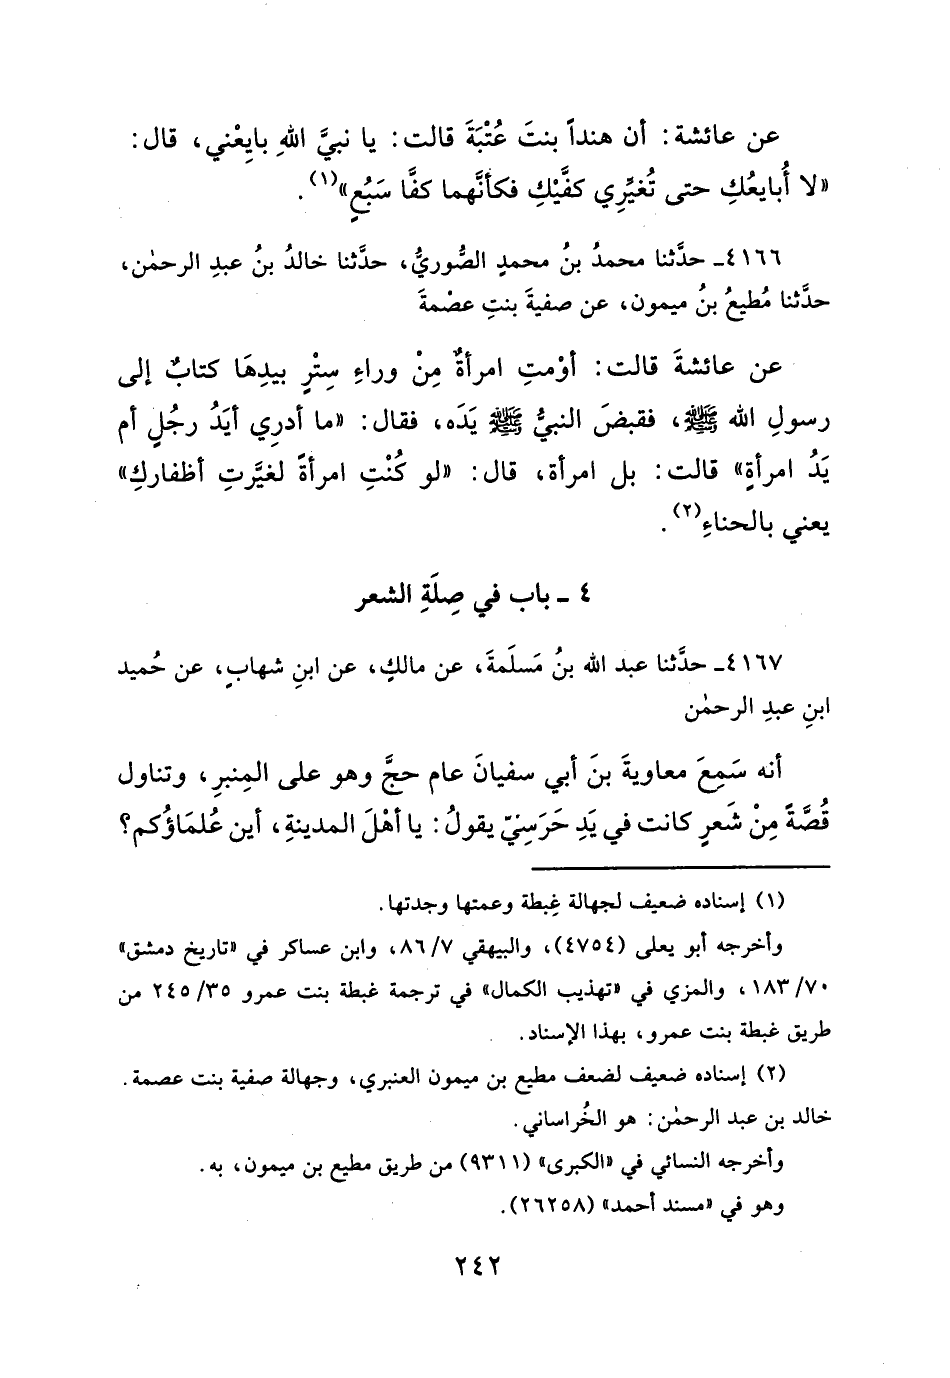 عن عائشة: أن هنداً بنتَ عُتْبَةَ قالت: يا نبيَّ اللهِ بايِعْني، قال:
«لا أُبايعُكِ حتى تُغيِّرِي كفَّيْكِ فكأنَّهما كفَّا سَبُعٍ»(١).
٤١٦٦ـ حدَّثنا محمدُ بنُ محمدٍ الصُّوريُّ، حدَّثنا خالدُ بنُ عبدِ الرحمٰن،
حدَّثنا مُطيعُ بنُ ميمون، عن صفيةَ بنتِ عصْمةَ
عن عائشةَ قالت: أوْمتِ امرأةٌ مِنْ وراءِ سِتْرٍ بيدِهَا كتابٌ إلى
رسولِ الله ﷺ، فقبضَ النبيُّ ﷺ يَدَه، فقال: «ما أدرِي أيَدُ رجُلٍ أم
يَدُ امرأةٍ» قالت: بل امرأة، قال: «لو كُنْتِ امرأةً لغيَّرتِ أظفاركِ»
يعني بالحناءِ(٢).
٤ ـ باب في صِلَةِ الشعر
٤١٦٧ـ حدَّثنا عبد الله بنُ مَسلَمةَ، عن مالكٍ، عن ابنِ شهابٍ، عن حُميد
ابنِ عبدِ الرحمٰن
أنه سَمِعَ معاويةَ بنَ أبي سفيانَ عام حجَّ وهو على المِنبرِ، وتناول
قُصَّةً مِنْ شَعرٍ كانت في يَدِ حَرَسِيّ يقولُ: يا أهْلَ المدينةِ، أين عُلمَاؤُكم؟
(١) إسناده ضعيف لجهالة غِبطة وعمتها وجدتها.
وأخرجه أبو يعلى (٤٧٥٤)، والبيهقي ٨٦/٧، وابن عساكر في «تاريخ دمشق»
١٨٣/٧٠، والمزي في «تهذيب الكمال» في ترجمة غبطة بنت عمرو ٢٤٥/٣٥ من
طريق غبطة بنت عمرو، بهذا الإسناد.
(٢) إسناده ضعيف لضعف مطيع بن ميمون العنبري، وجهالة صفية بنت عصمة.
خالد بن عبد الرحمٰن: هو الخُراساني.
وأخرجه النسائي في «الكبرى» (٩٣١١) من طريق مطيع بن ميمون، به.
وهو في «مسند أحمد» (٢٦٢٥٨).
٢٤٢